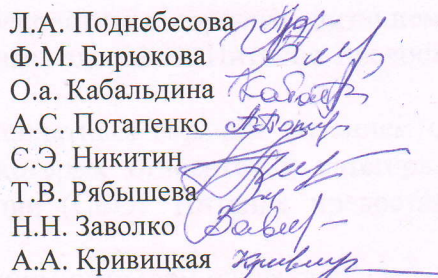 Л.А. Поднебесова
Ф.М. Бирюкова
О.а. Кабальдина
А.С. Потапенко
С.Э. Никитин
Т.В. Рябышева
Н.Н. Заволко
А.А. Кривицкая